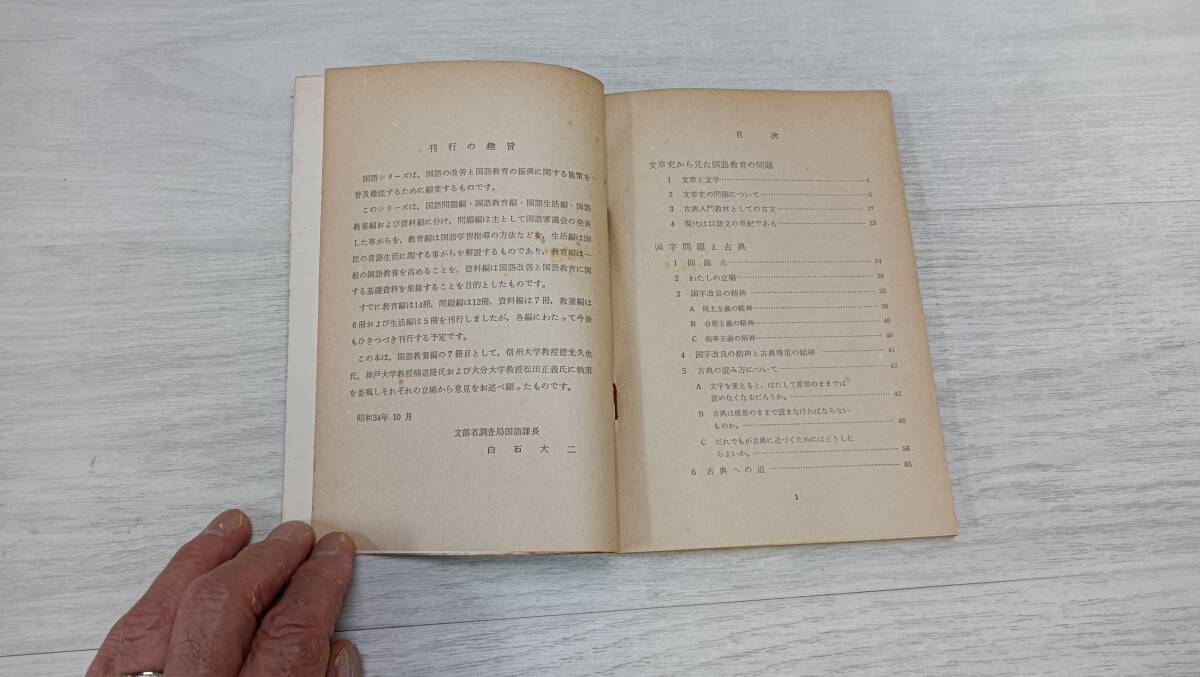 刊行の趣旨
国語シリーズは,国語の改善と国語教育の振興に関する施策を
普及徹底するために編集するものです。
このシリーズは,国語問題編・国語教育編・国語生活編・国語
教養編および資料編に分け,問題編は主として国語審議会の発表
した事がらを,教育編は国語学習指導の方法などを,生活編は国
民の言語生活に関する事がらを解説するものであり,教育編は一
般の国語教養を高めることを,資料編は国語改善と国語教育に関
する基礎資料を集録することを目的としたものです。
すでに教育編は14冊,問題編は12冊,資料編は7冊,教養編は
6冊および生活編は5冊を刊行しましたが,各編にわたって今後
もひきつづき刊行する予定です。
この本は,国語教養編の7冊目として,信州大学教授徳光久也
氏,神戸大学教授楠道隆氏および大分大学教授松田正義氏に執筆
を委嘱しそれぞれの立場から意見をお述べ願ったものです。
昭和34年10月
文部省調査局国語課長
白石大二
目次
文章史から見た国語教育の問題
1 文章と文学 1
2 文章史の問題について 5
3 古典入門教材としての古文 17
4 現代は口語文の世紀である 23
国字問題と古典
1 問題点 34
2 わたしの立場 35
3 国字改良の精神 35
A 民主主義の精神 36
B 合理主義の精神 40
C 能率主義の精神 40
4 国字改良の精神と古典尊重の精神 41
5 古典の読み方について 42
A 文字を変えると,はたして原形のままでは
読めなくなるだろうか。 42
B 古典は原形のままで読まなければならない
ものか。 46
C だれでもが古典に近づくためにはどうした
らよいか。 56
6 古典への道 65
1